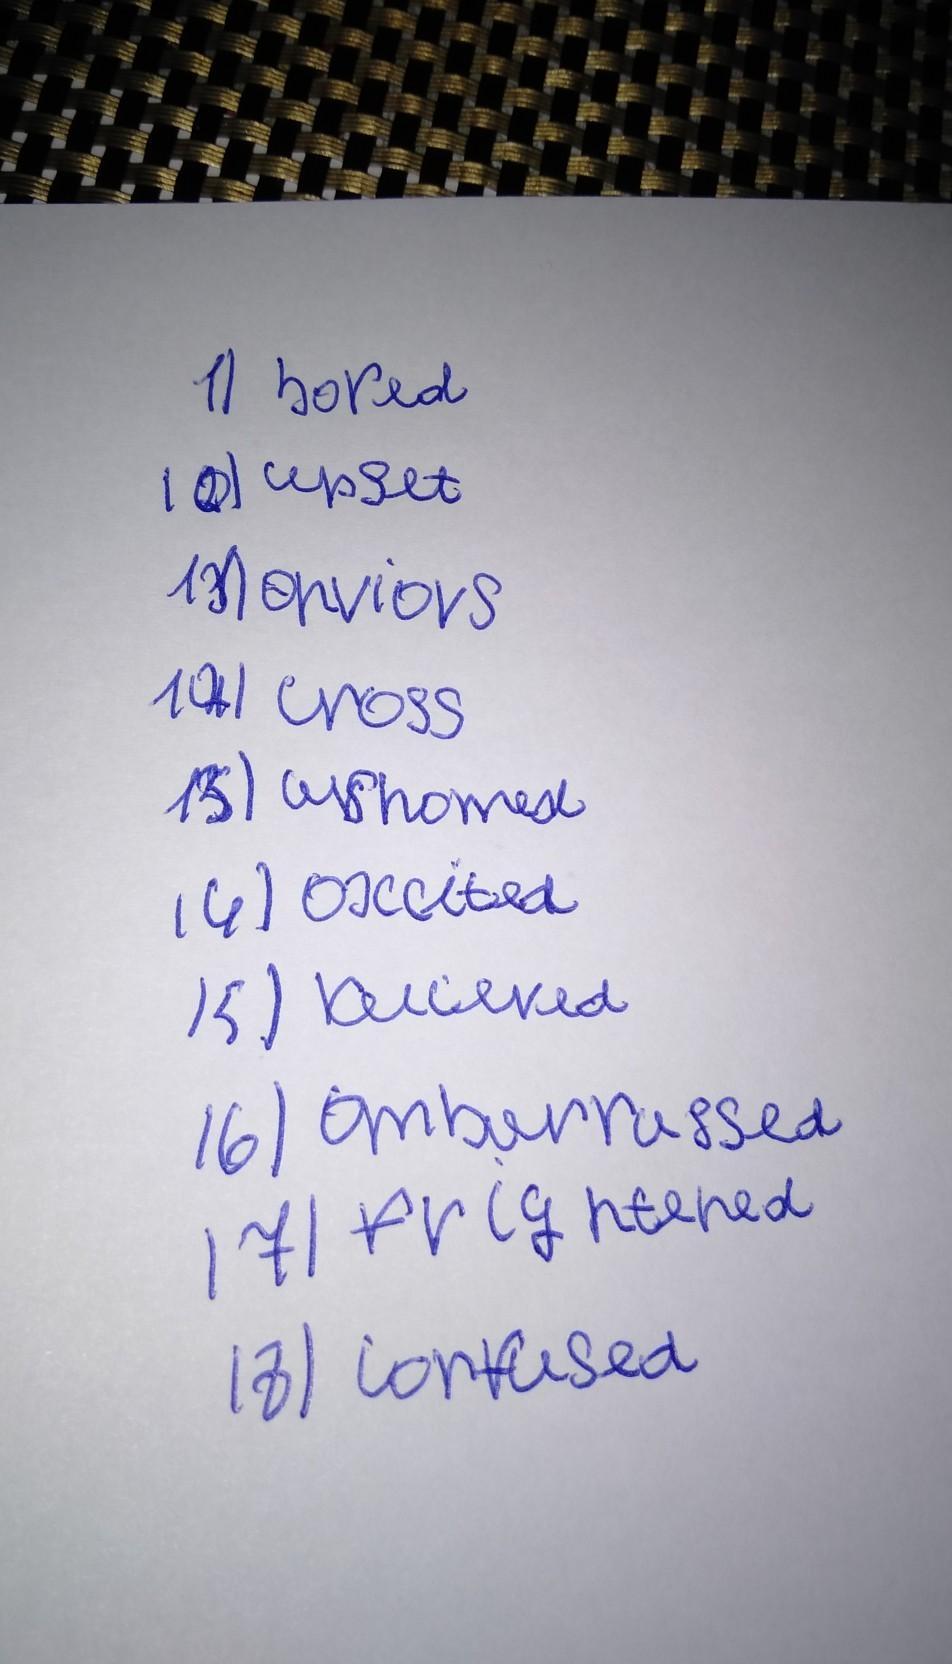 1) bored
10) upset
13) envious
14) cross
15) ashamed
14) excited
15) relieved
16) embarrassed
17) frightened
18) confused